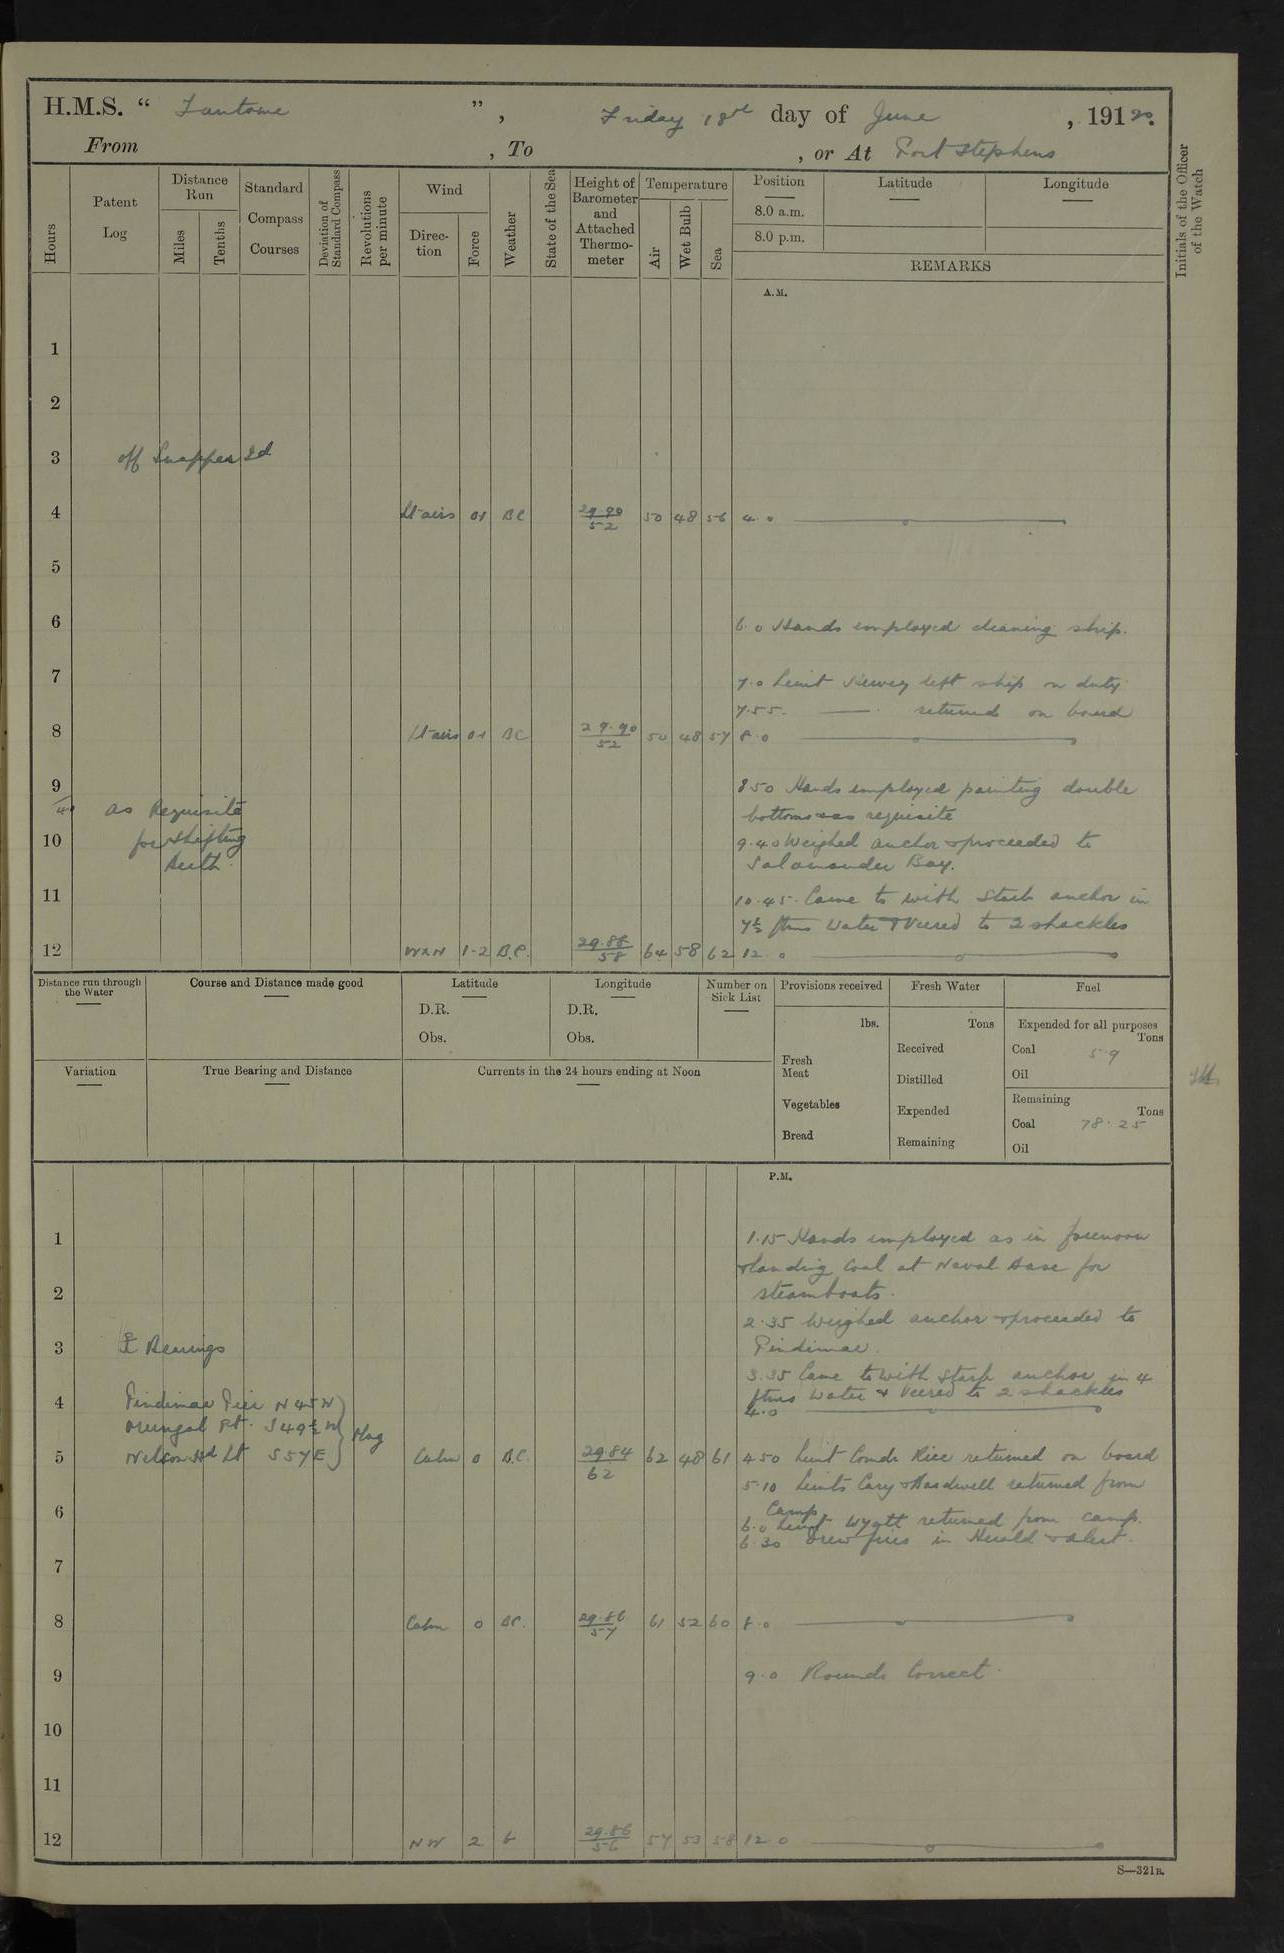 H.M.S. “ Fantome ”, Friday 18th day of June , 191 20.
From , To , or At Port Stephens
Hours
Patent Log
Distance Run
Miles
Tenths
Standard Compass Courses
Deviation of Standard Compass
Revolutions per minute
Wind
Direc-tion
Force
Weather
State of the Sea
Height of Barometer and Attached Thermo-meter
Temperature
Air
Wet Bulb
Sea
Position
8.0 a.m.
8.0 p.m.
Latitude
Longitude
REMARKS
Initials of the Officer of the Watch
A.M.
1
2
3 off Snapper Id
4 Lt airs 01 BC 29.90/52 50 48 56 4.0
5
6 6.0 Hands employed cleaning ship.
7 7.0 Lieut left ship on duty
7.55. —— returned on board
8 Lt airs 01 BC 29.90/52 50 48 57 8.0
9 8.50 Hands employed painting double
as Requisite bottoms as requisite
10 for shifting 9.40 Weighed anchor & proceeded to
Berth. Salamander Bay.
11 10.45. Came to with Starb anchor in
7½ fms water & Veered to 2 shackles
12 WxN 1-2 B.C. 29.88/58 64 58 62 12.0
Distance run through the Water
Course and Distance made good
Latitude
D.R.
Obs.
Longitude
D.R.
Obs.
Number on Sick List
Provisions received
lbs.
Fresh Meat
Vegetables
Bread
Fresh Water
Tons
Received
Distilled
Expended
Remaining
Fuel
Expended for all purposes
Tons
Coal 5.9
Oil
Remaining
Tons
Coal 78.25
Oil
Variation
True Bearing and Distance
Currents in the 24 hours ending at Noon
P.M.
1 1.15 Hands employed as in forenoon
& landing coal at Naval Base for
2 steamboats.
2.35 Weighed anchor & proceeded to
3 Bearings Pindimar.
3.35 Came to with Starb anchor in 4
4 Pindimar Pier N45W fms water & Veered to 2 shackles
4.0
Pt. S49½W Mag
5 Nelson Hd Lt S57E Calm 0 B.C. 29.84/62 62 48 61 4.50 Lieut Comdr Rice returned on board
5.10 Lieuts Cary & Hardwell returned from
6 Camp.
6.0 Lieut Wyatt returned from camp.
6.30 Drew fires in Herald & Alert.
7
8 Calm 0 BC. 29.86/57 61 52 60 8.0
9 9.0 Rounds Correct.
10
11
12 NW 2 b 29.86/56 57 53 58 12.0
S—321B.